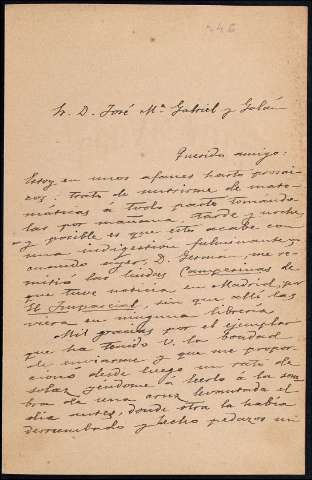 246
Sr. D. José Mª Gabriel y Galán
Querido amigo:
Estoy en unos afanes harto prosai
cos; trato de nutrirme de mate
máticas á todo pasto tomando
las por mañana, tarde y noche,
y posible es que esto acabe con
una indigestión fulminante y
cuando D. German me re
mitió las lindas Campesinas de
que tuve noticia en Madrid, por
El Imparcial, sin que allí las
viera en ninguna librería
Mil gracias por el ejemplar
que ha tenido V. la bondad
de enviarme y que me propor
cionó desde luego un rato de
solaz yéndome á leerlo á la som
bra de una cruz levantada el
dia antes, donde otra la había
derrumbado y hecho pedazos un